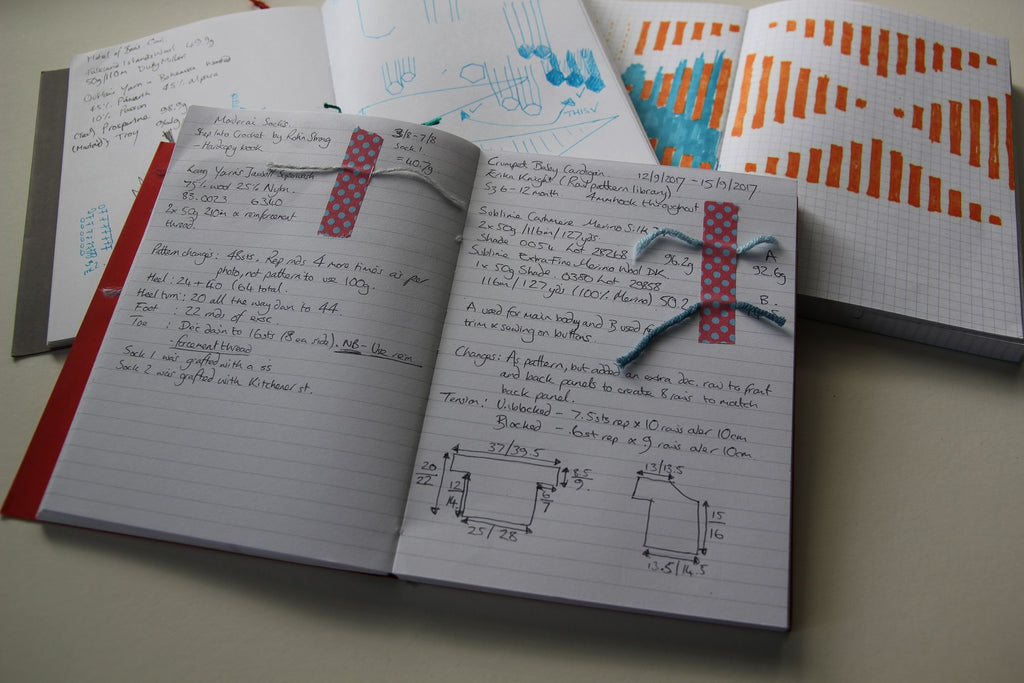 49.9g
Falkland Islands Wool
50g/110m
45% Alpaca
10%
98.9g
THIS V
Madeira Socks.
Step Into Crochet by Rohn Strong
- Hardcopy book
3/8 - 7/8
Sock 1
= 40.7g
75% wool 25% Nylon.
83.0023 6340
2x 50g 210m & reinforcement
thread.
Pattern changes: 48sts. Rep rnds 4 more times as per
photo, not pattern to use 100g.
Heel: 24 + 40 (64 total.
Heel turn: 20 all the way down to 44.
Foot: 22 rnds of esc.
Toe: Dec down to 16sts (8 ea side). NB - Use rein
-forcement thread
Sock 1 was grafted with a ss
Sock 2 was grafted with Kitchener st.
Crumpet Baby Cardigan 12/9/2017 - 15/9/2017.
Erika Knight (Ravi pattern library)
S3 6-12 month 4mm hook throughout
Sublime Cashmere Merino Silk
2x 50g /116m/127yds
Shade 0054 Lot 28268 96.2g
A
92.6g
Sublime Extra-Fine Merino Wool DK.
1x 50g Shade. 0380 Lot 29858
116m/127 yds (100% Merino) 50.2
B.
A used for main body and B used
trim & sewing on buttons.
Changes: As pattern, but added an extra dec. row to front
and back panels to create 8 rows to match
back panel.
Tension: Unblocked - 7.5sts rep x 10 rows over 10cm
Blocked - 6st rep x 9 rows over 10cm.
37/39.5
20/22
12/14
3.5/9.
6/7
25/28
13/13.5
15/16
13.5/14.5